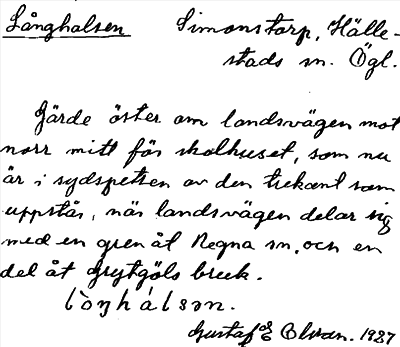 Långhalsen Simonstorp, Hälle-
stads sn. Ögl.
Gärde öster om landsvägen mot
norr mitt för skolhuset, som nu
är i sydspetsen av den trekant som
uppstår, när landsvägen delar sig
med en gren åt Regna sn. och en
del åt Grytgöls bruk.
lòŋhálsən.
Gustaf E Olson. 1927